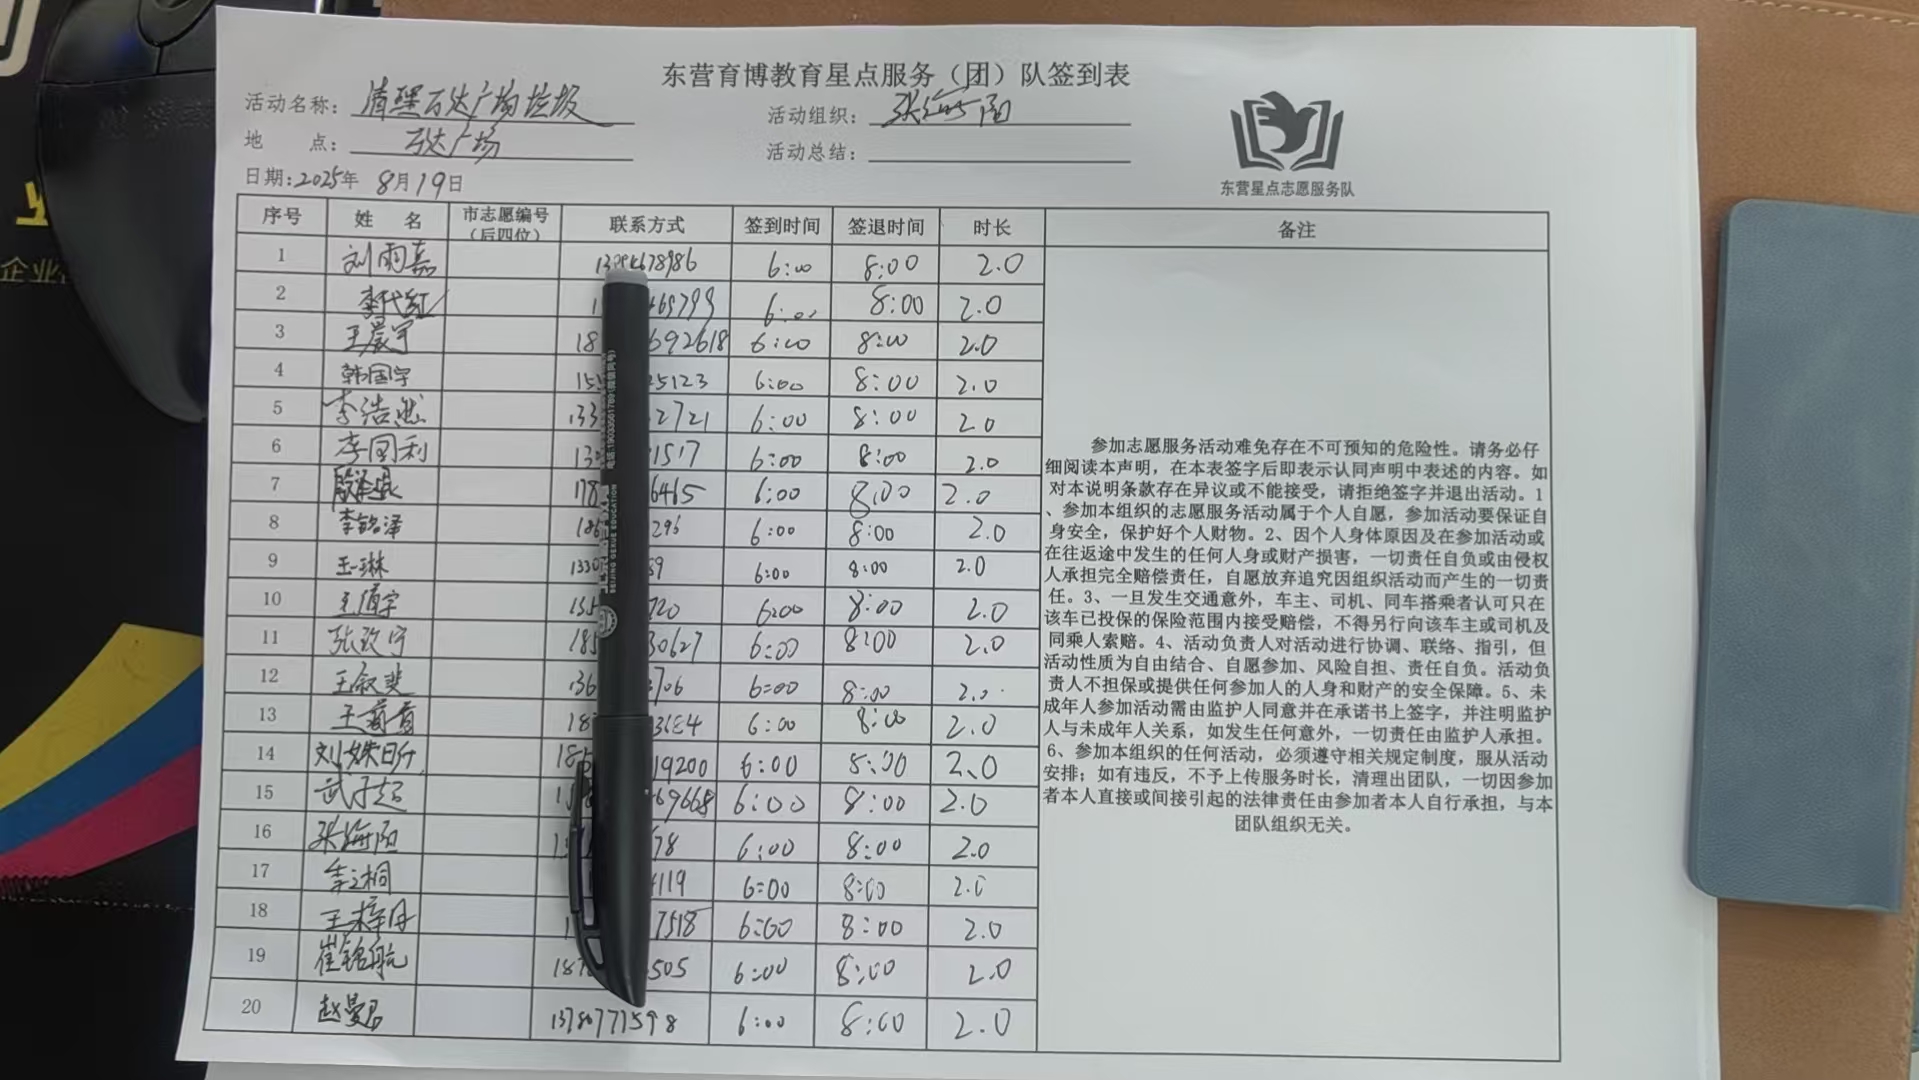 东营育博教育星点服务（团）队签到表
活动名称：清理万达广场垃圾
活动组织：张海阳
地 点：万达广场
活动总结：
日期：2025年 8月19日
东营星点志愿服务队
序号 姓 名 市志愿编号（后四位） 联系方式 签到时间 签退时间 时长 备注
1 刘雨嘉 678986 6:00 8:00 2.0
2 李代红 69799 6:00 8:00 2.0
3 王晨宇 18 692618 6:00 8:00 2.0
4 韩国宇 155 25123 6:00 8:00 2.0
5 李浩然 133 2721 6:00 8:00 2.0
6 李国利 130 1517 6:00 8:00 2.0
7 178 6465 6:00 8:00 2.0
8 李铭泽 186 296 6:00 8:00 2.0
9 王琳 1330 89 6:00 8:00 2.0
10 135 720 6:00 8:00 2.0
11 185 30627 6:00 8:00 2.0
12 王叙斐 136 706 6:00 8:00 2.0
13 18 6:00 8:00 2.0
14 刘姝昕 185 19200 6:00 8:00 2.0
15 武子超 1 69668 6:00 8:00 2.0
16 张海阳 1 78 6:00 8:00 2.0
17 4119 6:00 8:00 2.0
18 王梓丹 1 7518 6:00 8:00 2.0
19 崔铭航 187 505 6:00 8:00 2.0
20 赵曼君 13780777598 6:00 8:00 2.0
参加志愿服务活动难免存在不可预知的危险性。请务必仔
细阅读本声明，在本表签字后即表示认同声明中表述的内容。如
对本说明条款存在异议或不能接受，请拒绝签字并退出活动。1
、参加本组织的志愿服务活动属于个人自愿，参加活动要保证自
身安全，保护好个人财物。2、因个人身体原因及在参加活动或
在往返途中发生的任何人身或财产损害，一切责任自负或由侵权
人承担完全赔偿责任，自愿放弃追究因组织活动而产生的一切责
任。3、一旦发生交通意外，车主、司机、同车搭乘者认可只在
该车已投保的保险范围内接受赔偿，不得另行向该车主或司机及
同乘人索赔。4、活动负责人对活动进行协调、联络、指引，但
活动性质为自由结合、自愿参加、风险自担、责任自负。活动负
责人不担保或提供任何参加人的人身和财产的安全保障。5、未
成年人参加活动需由监护人同意并在承诺书上签字，并注明监护
人与未成年人关系，如发生任何意外，一切责任由监护人承担。
6、参加本组织的任何活动，必须遵守相关规定制度，服从活动
安排；如有违反，不予上传服务时长，清理出团队，一切因参加
者本人直接或间接引起的法律责任由参加者本人自行承担，与本
团队组织无关。
电话:19033501789(微信同号)
BEIJING GEXUE EDUCATION
企业